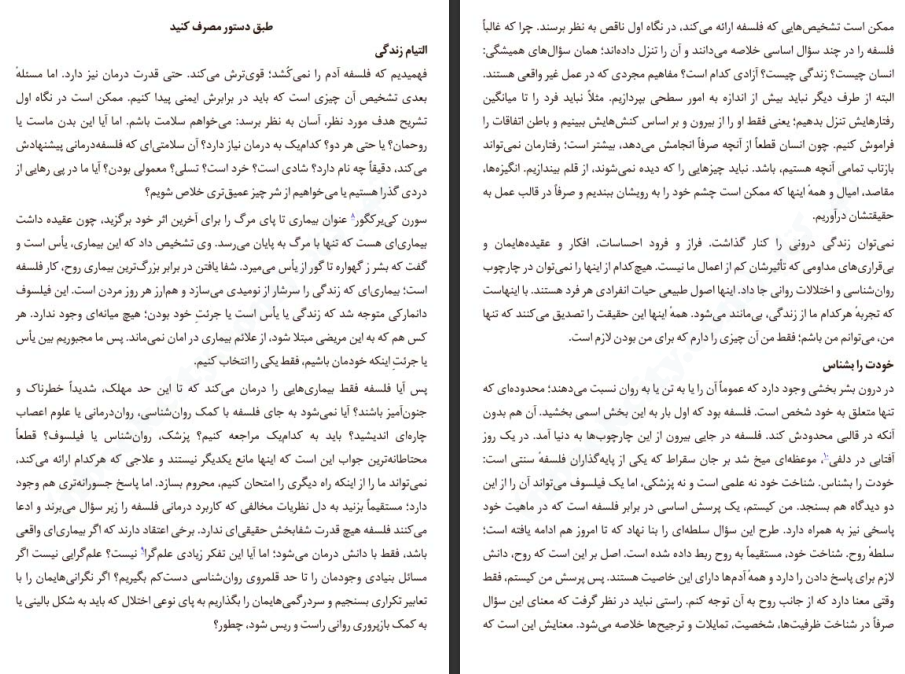 طبق دستور مصرف کنید
التیام زندگی
فهمیدیم که فلسفه آدم را نمی‌کُشد؛ قوی‌ترش می‌کند. حتی قدرت درمان نیز دارد. اما مسئلهٔ
بعدی تشخیص آن چیزی است که باید در برابرش ایمنی پیدا کنیم. ممکن است در نگاه اول
تشریح هدف مورد نظر، آسان به نظر برسد: می‌خواهم سلامت باشم. اما آیا این بدن ماست یا
روحمان؟ یا حتی هر دو؟ کدام‌یک به درمان نیاز دارد؟ آن سلامتی‌ای که فلسفه‌درمانی پیشنهادش
می‌کند، دقیقاً چه نام دارد؟ شادی است؟ خرد است؟ تسلی؟ معمولی بودن؟ آیا ما در پی رهایی از
دردی گذرا هستیم یا می‌خواهیم از شر چیز عمیق‌تری خلاص شویم؟
سورن کی‌یرکگور⁸ عنوان بیماری تا پای مرگ را برای آخرین اثر خود برگزید، چون عقیده داشت
بیماری‌ای هست که تنها با مرگ به پایان می‌رسد. وی تشخیص داد که این بیماری، یأس است و
گفت که بشر ز گهواره تا گور از یأس می‌میرد. شفا یافتن در برابر بزرگ‌ترین بیماری روح، کار فلسفه
است؛ بیماری‌ای که زندگی را سرشار از نومیدی می‌سازد و هم‌ارز هر روز مردن است. این فیلسوف
دانمارکی متوجه شد که زندگی یا یأس است یا جرئتِ خود بودن؛ هیچ میانه‌ای وجود ندارد. هر
کس هم که به این مریضی مبتلا شود، از علائم بیماری در امان نمی‌ماند. پس ما مجبوریم بین یأس
یا جرئتِ اینکه خودمان باشیم، فقط یکی را انتخاب کنیم.
پس آیا فلسفه فقط بیماری‌هایی را درمان می‌کند که تا این حد مهلک، شدیداً خطرناک و
جنون‌آمیز باشند؟ آیا نمی‌شود به جای فلسفه با کمک روان‌شناسی، روان‌درمانی یا علوم اعصاب
چاره‌ای اندیشید؟ باید به کدام‌یک مراجعه کنیم؟ پزشک، روان‌شناس یا فیلسوف؟ قطعاً
محتاطانه‌ترین جواب این است که اینها مانع یکدیگر نیستند و علاجی که هرکدام ارائه می‌کند،
نمی‌تواند ما را از اینکه راه دیگری را امتحان کنیم، محروم بسازد. اما پاسخ جسورانه‌تری هم وجود
دارد؛ مستقیماً بزنید به دل نظریات مخالفی که کاربرد درمانی فلسفه را زیر سؤال می‌برند و ادعا
می‌کنند فلسفه هیچ قدرت شفابخش حقیقی‌ای ندارد. برخی اعتقاد دارند که اگر بیماری‌ای واقعی
باشد، فقط با دانش درمان می‌شود؛ اما آیا این تفکر زیادی علم‌گرا⁹ نیست؟ علم‌گرایی نیست اگر
مسائل بنیادی وجودمان را تا حد قلمروی روان‌شناسی دست‌کم بگیریم؟ اگر نگرانی‌هایمان را با
تعابیر تکراری بسنجیم و سردرگمی‌هایمان را بگذاریم به پای نوعی اختلال که باید به شکل بالینی یا
به کمک بازپروری روانی راست و ریس شود، چطور؟
ممکن است تشخیص‌هایی که فلسفه ارائه می‌کند، در نگاه اول ناقص به نظر برسند. چرا که غالباً
فلسفه را در چند سؤال اساسی خلاصه می‌دانند و آن را تنزل داده‌اند؛ همان سؤال‌های همیشگی:
انسان چیست؟ زندگی چیست؟ آزادی کدام است؟ مفاهیم مجردی که در عمل غیر واقعی هستند.
البته از طرف دیگر نباید بیش از اندازه به امور سطحی بپردازیم. مثلاً نباید فرد را تا میانگین
رفتارهایش تنزل بدهیم؛ یعنی فقط او را از بیرون و بر اساس کنش‌هایش ببینیم و باطن اتفاقات را
فراموش کنیم. چون انسان قطعاً از آنچه صرفاً انجامش می‌دهد، بیشتر است؛ رفتارمان نمی‌تواند
بازتاب تمامی آنچه هستیم، باشد. نباید چیزهایی را که دیده نمی‌شوند، از قلم بیندازیم. انگیزه‌ها،
مقاصد، امیال و همهٔ اینها که ممکن است چشم خود را به رویشان ببندیم و صرفاً در قالب عمل به
حقیقتشان درآوریم.
نمی‌توان زندگی درونی را کنار گذاشت. فراز و فرود احساسات، افکار و عقیده‌هایمان و
بی‌قراری‌های مداومی که تأثیرشان کم از اعمال ما نیست. هیچ‌کدام از اینها را نمی‌توان در چارچوب
روان‌شناسی و اختلالات روانی جا داد. اینها اصول طبیعی حیات انفرادی هر فرد هستند. با اینهاست
که تجربهٔ هرکدام ما از زندگی، بی‌مانند می‌شود. همهٔ اینها این حقیقت را تصدیق می‌کنند که تنها
من، می‌توانم من باشم؛ فقط من آن چیزی را دارم که برای من بودن لازم است.
خودت را بشناس
در درون بشر بخشی وجود دارد که عموماً آن را یا به تن یا به روان نسبت می‌دهند؛ محدوده‌ای که
تنها متعلق به خود شخص است. فلسفه بود که اول بار به این بخش اسمی بخشید. آن هم بدون
آنکه در قالبی محدودش کند. فلسفه در جایی بیرون از این چارچوب‌ها به دنیا آمد. در یک روز
آفتابی در دلفی¹⁰، موعظه‌ای میخ شد بر جان سقراط که یکی از پایه‌گذاران فلسفهٔ سنتی است:
خودت را بشناس. شناخت خود نه علمی است و نه پزشکی، اما یک فیلسوف می‌تواند آن را از این
دو دیدگاه هم بسنجد. من کیستم، یک پرسش اساسی در برابر فلسفه است که در ماهیت خود
پاسخی نیز به همراه دارد. طرح این سؤال سلطه‌ای را بنا نهاد که تا امروز هم ادامه یافته است؛
سلطهٔ روح. شناخت خود، مستقیماً به روح ربط داده شده است. اصل بر این است که روح، دانش
لازم برای پاسخ دادن را دارد و همهٔ آدم‌ها دارای این خاصیت هستند. پس پرسش من کیستم، فقط
وقتی معنا دارد که از جانب روح به آن توجه کنم. راستی نباید در نظر گرفت که معنای این سؤال
صرفاً در شناخت ظرفیت‌ها، شخصیت، تمایلات و ترجیح‌ها خلاصه می‌شود. معنایش این است که